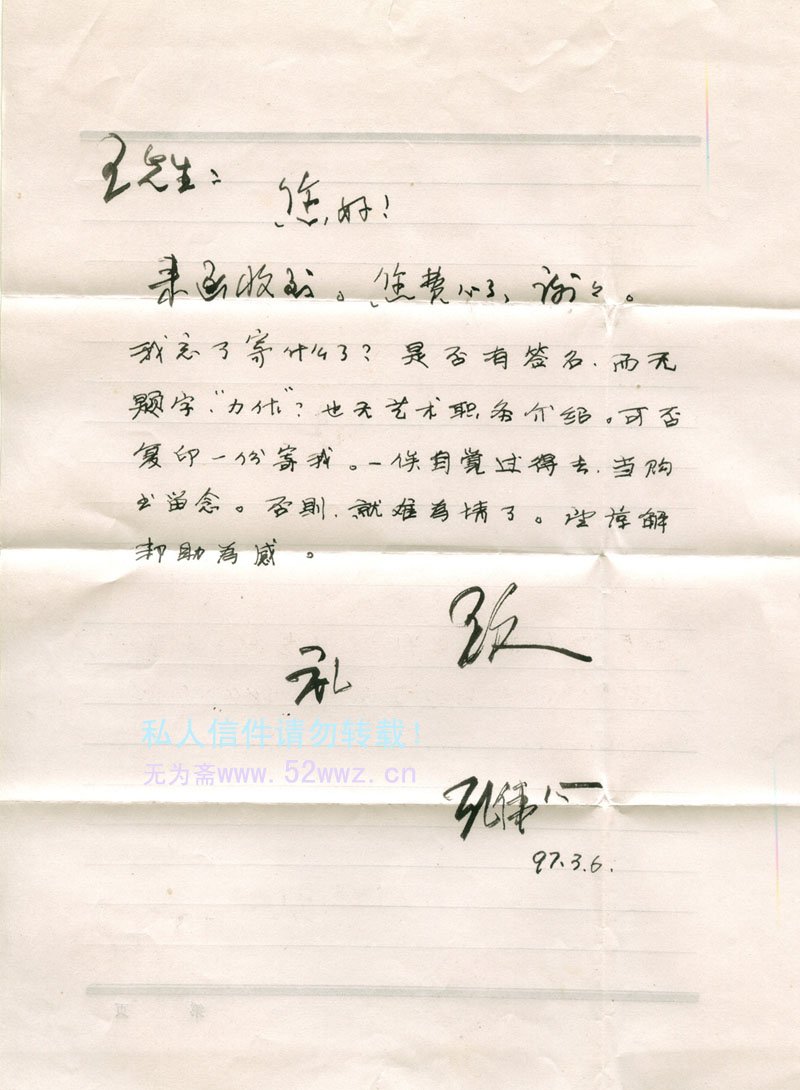 王先生：
您好！
来函收到。您费心了，谢々。
我忘了寄什么了？是否有签名，而无
题字“力作”？也无艺术职务介绍。可否
复印一份寄我。一俟自觉过得去，当购
书留念。否则，就难為情了。望谅解
邦助為感。
致
礼
私人信件请勿转载！
无为斋www.52wwz.cn
孔伟
97.3.6.
页 第